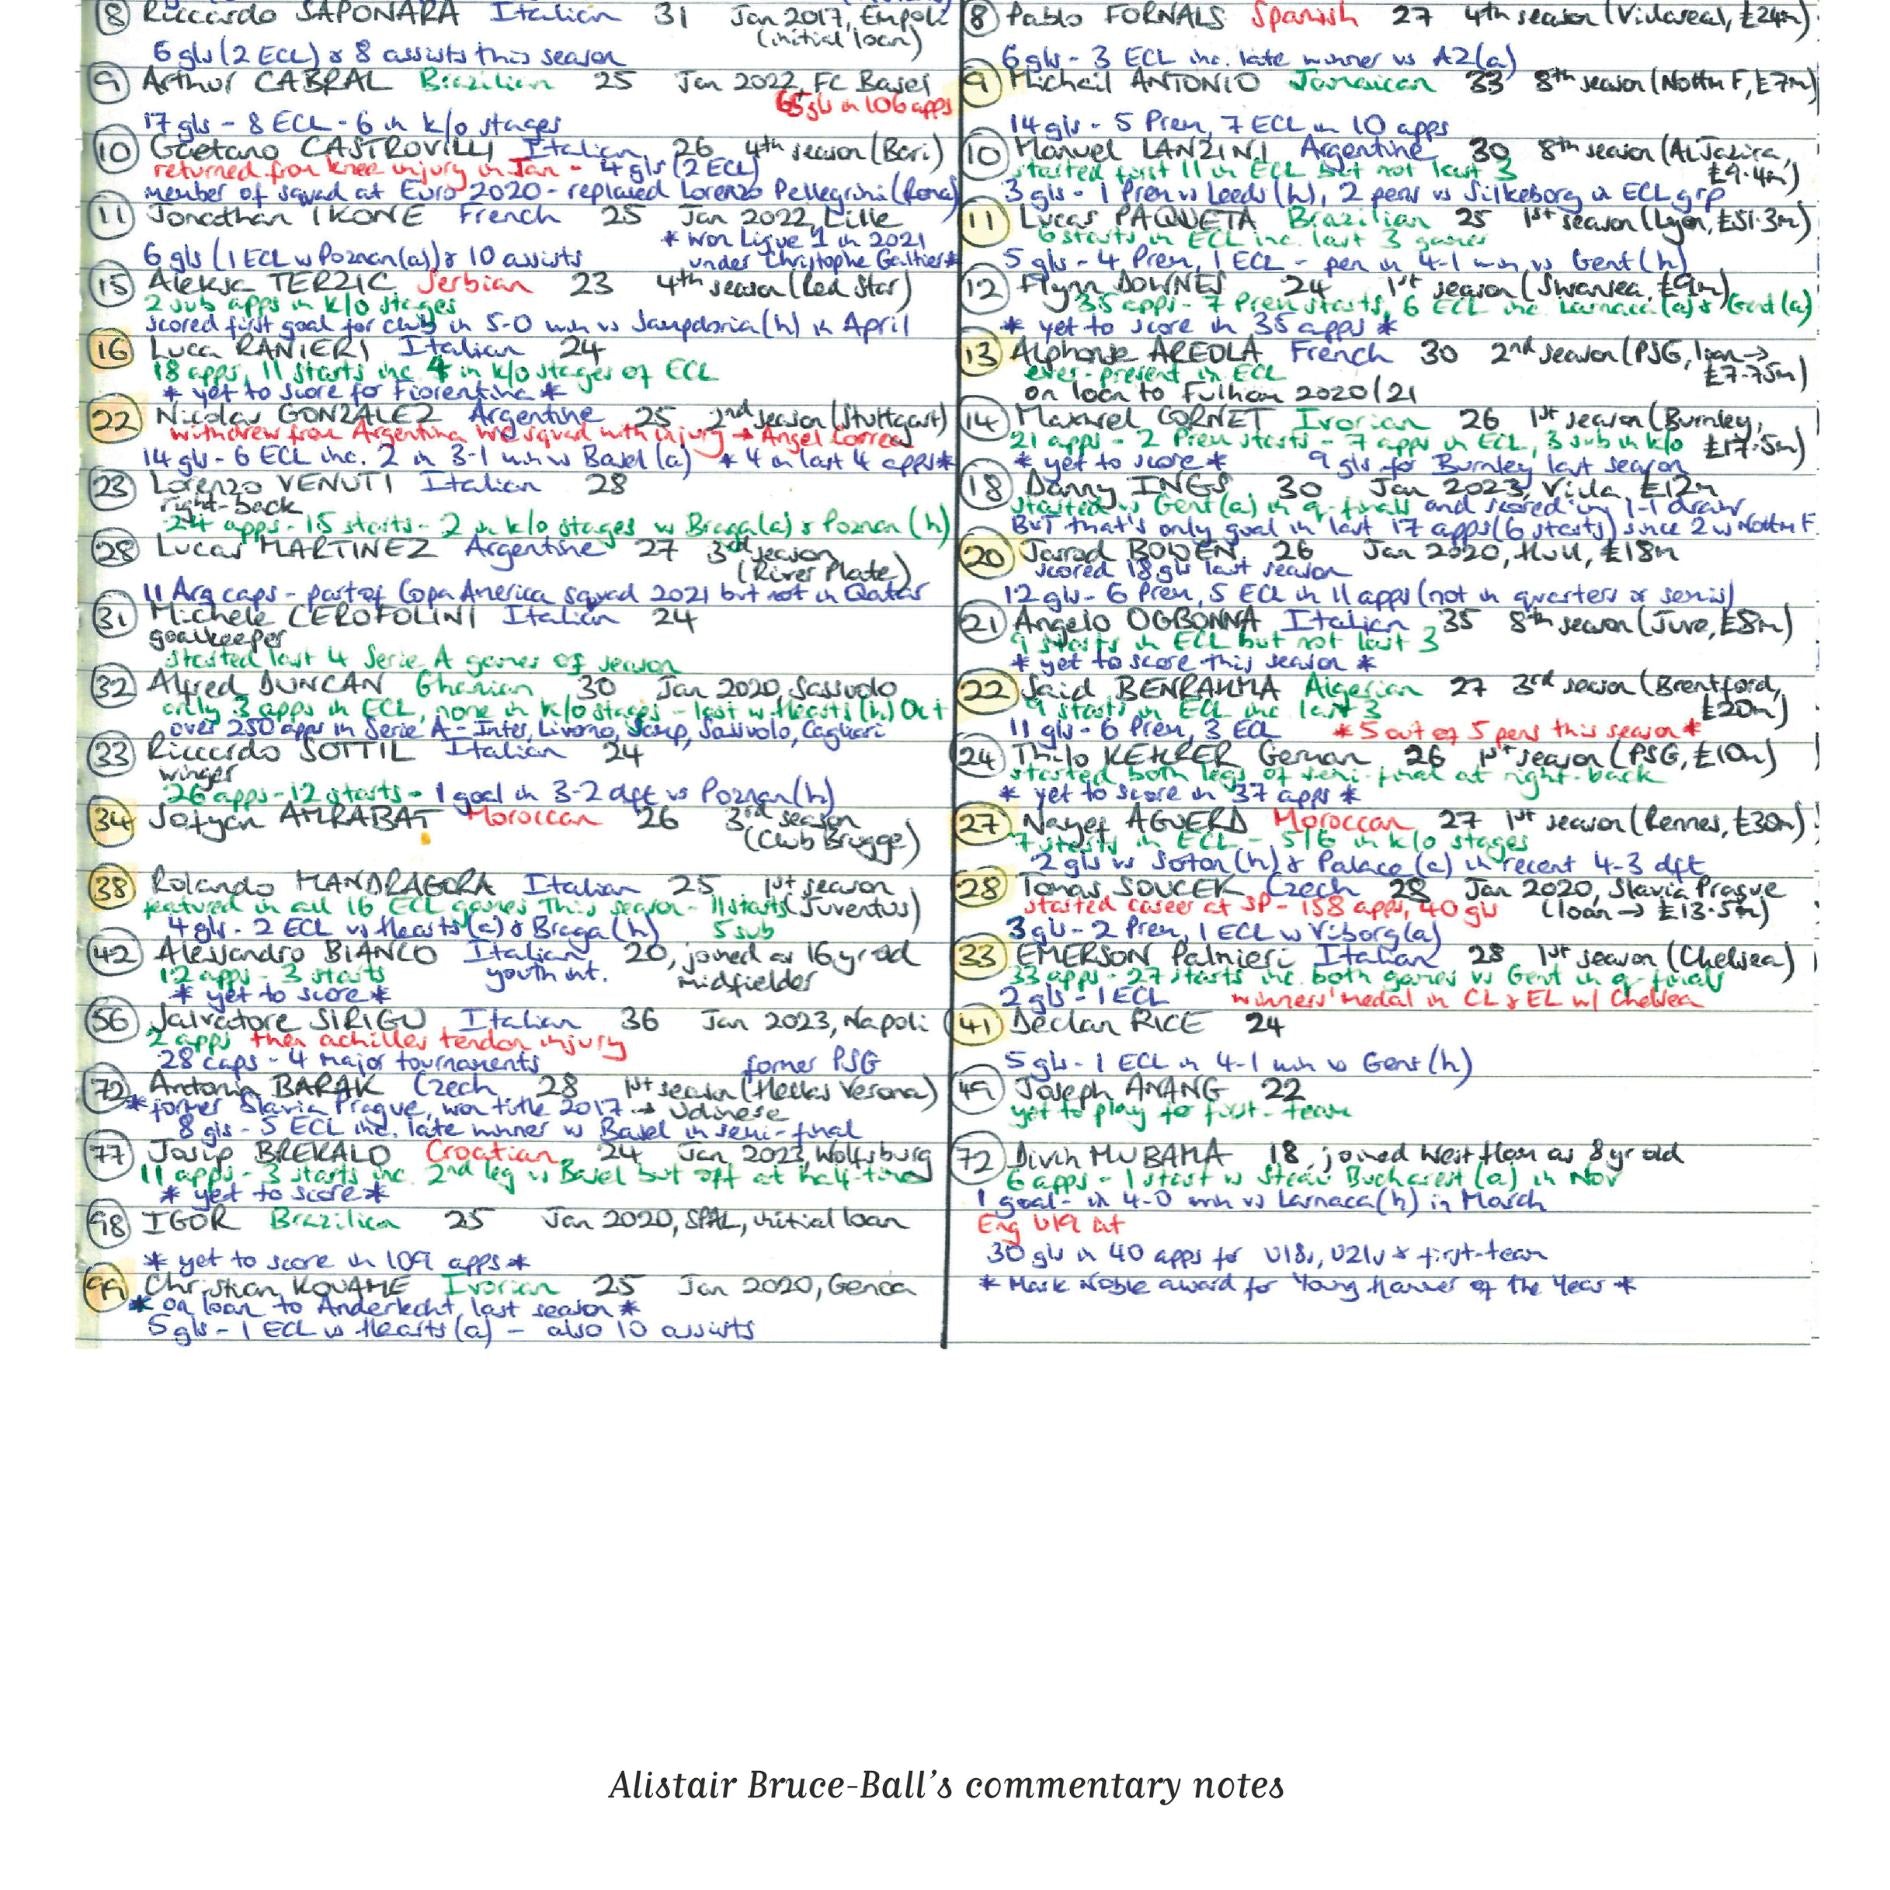 8 Riccardo SAPONARA Italian 31 Jan 2017, Empoli
(initial loan)
6 gls (2 ECL) & 8 assists this season
9 Arthur CABRAL Brazilian 25 Jan 2022, FC Basel
65 gls in 106 apps
17 gls - 8 ECL - 6 in k/o stages
10 Gaetano CASTROVILLI Italian 26 4th season (Bari)
returned from knee injury in Jan - 4 gls (2 ECL)
member of squad at Euro 2020 - replaced Lorenzo Pellegrini (Roma)
11 Jonathan IKONE French 25 Jan 2022, Lille
* won Ligue 1 in 2021
6 gls (1 ECL v Poznan(a)) & 10 assists under Christophe Galtier *
15 Aleksa TERZIC Serbian 23 4th season (Red Star)
2 sub apps in k/o stages
scored first goal for club in 5-0 win vs Sampdoria (h) in April
16 Luca RANIERI Italian 24
18 apps, 11 starts inc 4 in k/o stages of ECL
* yet to score for Fiorentina *
22 Nicolas GONZALEZ Argentine 25 2nd season (Stuttgart)
withdrew from Argentina WC squad with injury → Angel Correa
14 gls - 6 ECL inc. 2 in 3-1 win vs Basel (a) * 4 in last 4 apps *
23 Lorenzo VENUTI Italian 28
right-back
24 apps - 15 starts - 2 in k/o stages v Braga (a) & Poznan (h)
28 Lucas MARTINEZ Argentine 27 3rd season
(River Plate)
11 Arg caps - part of Copa America squad 2021 but not in Qatar
31 Michele CEROFOLINI Italian 24
goalkeeper
started last 4 Serie A games of season
32 Alfred DUNCAN Ghanian 30 Jan 2020, Sassuolo
only 3 apps in ECL, none in k/o stages - last v Hearts (h) Oct
over 250 apps in Serie A - Inter, Livorno, Samp, Sassuolo, Cagliari
33 Riccardo SOTTIL Italian 24
winger
26 apps - 12 starts - 1 goal in 3-2 dft vs Poznan (h)
34 Sofyan AMRABAT Moroccan 26 3rd season
(Club Brugge)
38 Rolando MANDRAGORA Italian 25 1st season
featured in all 16 ECL games this season - 11 starts (Juventus)
4 gls - 2 ECL vs Hearts (a) & Braga (h) 5 sub
42 Alessandro BIANCO Italian 20, joined as 16 yr old
12 apps - 3 starts youth int. midfielder
* yet to score *
56 Salvatore SIRIGU Italian 36 Jan 2023, Napoli
2 apps then achilles tendon injury
28 caps - 4 major tournaments former PSG
72 Antonin BARAK Czech 28 1st season (Hellas Verona)
* former Slavia Prague, won title 2017 → Udinese
8 gls - 5 ECL inc. late winner v Basel in semi-final
77 Josip BREKALO Croatian 24 Jan 2023, Wolfsburg
11 apps - 3 starts inc. 2nd leg vs Basel but off at half-time
* yet to score *
98 IGOR Brazilian 25 Jan 2020, SPAL, initial loan
* yet to score in 109 apps *
99 Christian KOUAME Ivorian 25 Jan 2020, Genoa
* on loan to Anderlecht last season *
5 gls - 1 ECL v Hearts (a) - also 10 assists
8 Pablo FORNALS Spanish 27 4th season (Villareal, £24m)
6 gls - 3 ECL inc. late winner vs AZ (a)
9 Michail ANTONIO Jamaican 33 8th season (Nottm F, £7m)
14 gls - 5 Prem, 7 ECL in 10 apps
10 Manuel LANZINI Argentine 30 8th season (Al Jazira,
started first 11 in ECL but not last 3 £9.4m)
3 gls - 1 Prem vs Leeds (h), 2 pens vs Silkeborg in ECL grp
11 Lucas PAQUETA Brazilian 25 1st season (Lyon, £51.3m)
6 starts in ECL inc. last 3 games
5 gls - 4 Prem, 1 ECL - pen in 4-1 win vs Gent (h)
12 Flynn DOWNES 24 1st season (Swansea, £9m)
35 apps - 7 Prem starts, 6 ECL inc Larnaca (a) & Gent (a)
* yet to score in 35 apps *
13 Alphonse AREOLA French 30 2nd season (PSG, loan →
ever-present in ECL £7.75m)
on loan to Fulham 2020/21
14 Maxwel CORNET Ivorian 26 1st season (Burnley,
21 apps - 2 Prem starts - 7 apps in ECL, 3 sub in k/o £17.5m)
* yet to score * 9 gls for Burnley last season
18 Danny INGS 30 Jan 2023, Villa, £12m
started v Gent (a) in q-finals and scored in 1-1 draw
BUT that's only goal in last 17 apps (6 starts) since 2 v Nottm F.
20 Jarrod BOWEN 26 Jan 2020, Hull, £18m
scored 18 gls last season
12 gls - 6 Prem, 5 ECL in 11 apps (not in quarters or semis)
21 Angelo OGBONNA Italian 35 8th season (Juve, £8m)
9 starts in ECL but not last 3
* yet to score this season *
22 Said BENRAHMA Algerian 27 3rd season (Brentford,
9 starts in ECL inc last 3 £20m)
11 gls - 6 Prem, 3 ECL * 5 out of 5 pens this season *
24 Thilo KEHRER German 26 1st season (PSG, £10m)
started both legs of semi-final at right-back
* yet to score in 37 apps *
27 Nayef AGUERD Moroccan 27 1st season (Rennes, £30m)
7 starts in ECL - 5/6 in k/o stages
2 gls vs Soton (h) & Palace (a) in recent 4-3 dft
28 Tomas SOUCEK Czech 28 Jan 2020, Slavia Prague
started career at SP - 158 apps, 40 gls (loan → £13.5m)
3 gls - 2 Prem, 1 ECL v Viborg (a)
33 EMERSON Palmieri Italian 28 1st season (Chelsea)
33 apps - 27 starts inc. both games vs Gent in q-finals
2 gls - 1 ECL winners' medal in CL & EL w/ Chelsea
41 Declan RICE 24
5 gls - 1 ECL in 4-1 win v Gent (h)
49 Joseph ANANG 22
yet to play for first-team
72 Divin MUBAMA 18, joined West Ham as 8 yr old
6 apps - 1 start v Steau Bucharest (a) in Nov
1 goal - in 4-0 win vs Larnaca (h) in March
Eng U19 int
30 gls in 40 apps for U18s, U21s & first-team
* Mark Noble award for Young Hammer of the Year *
Alistair Bruce-Ball's commentary notes